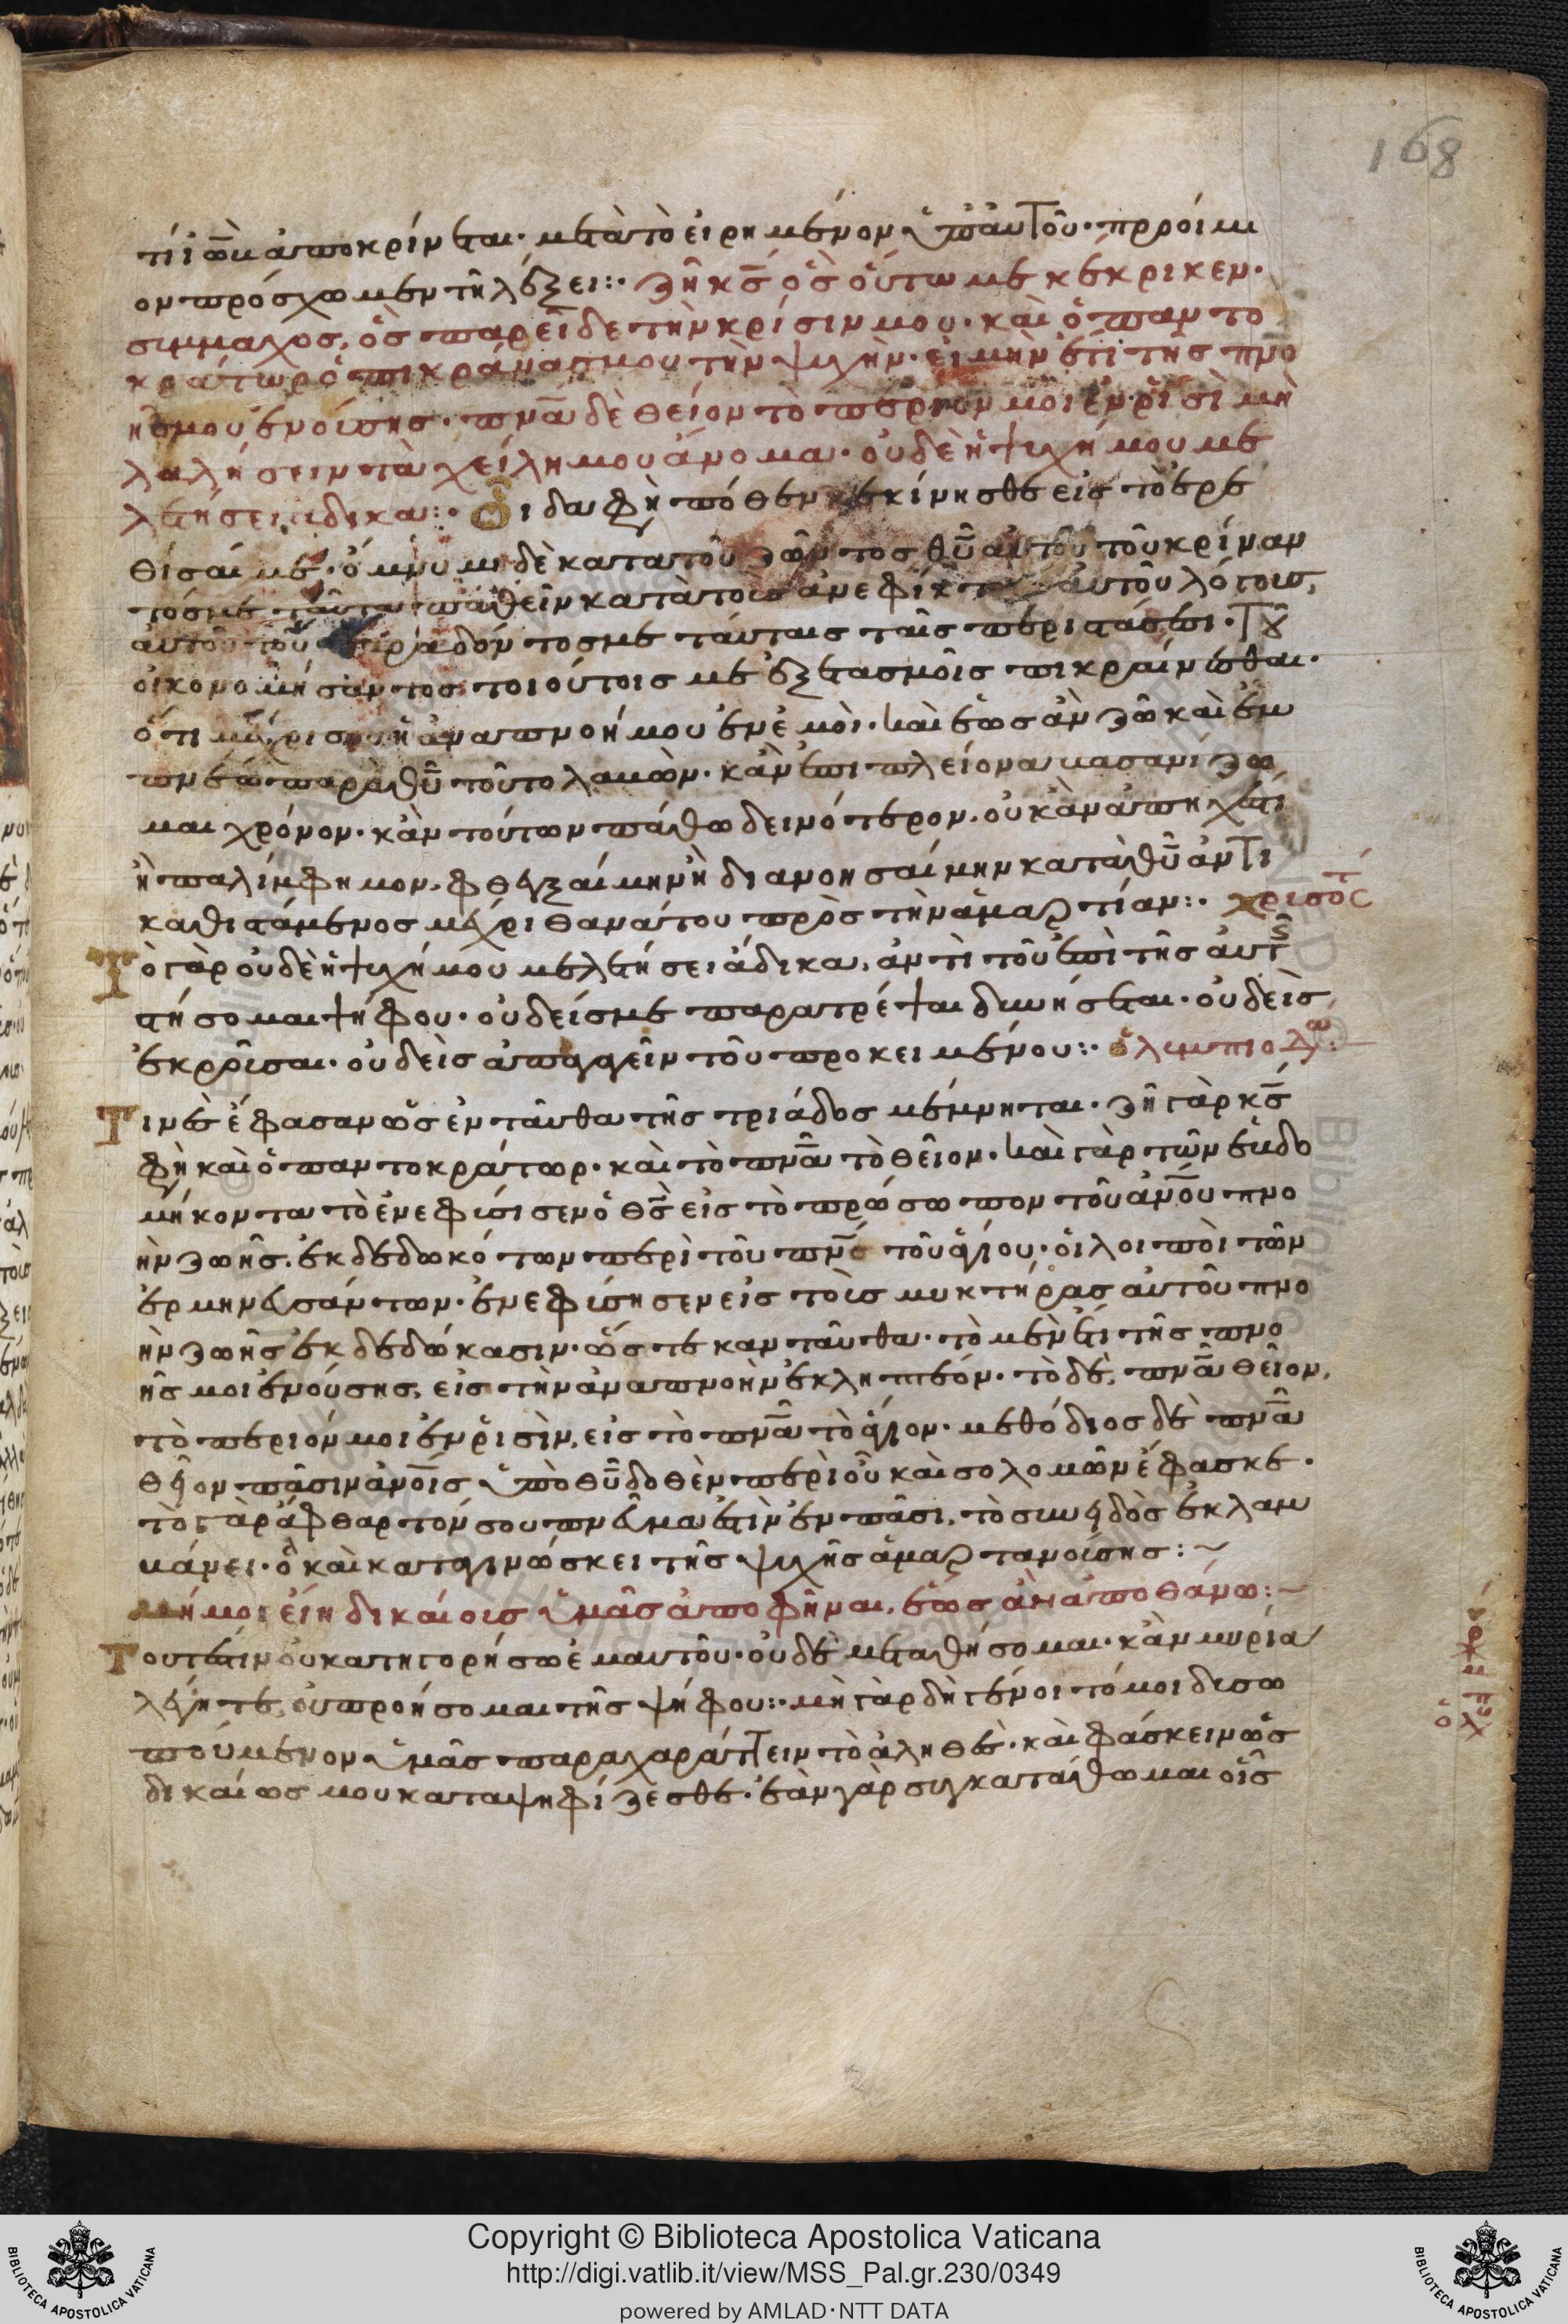 168
τί ἰὼβ ἀποκρίνεται· μετὰ τὸ εἰρημένον ὑπ' αὐτοῦ· προοίμι
ον πρόσχωμεν τῆ λέξει:· ζῆ κς̄ ὃς οὕτω με κέκρικεν·
σύμμαχος, ὃς παρεῖδε τὴν κρίσιν μου· καὶ ὁ παντο
κράτωρ ὁ πικράνας μου τὴν ψυχὴν· εἰ μὴν ἔτι τῆς πνο
ῆς μου ἐνούσης· πνᾱ δὲ θεῖον τὸ περιόν μοι ἐν ῥισὶ μὴ
λαλήσειν τὰ χείλη μου ἄνομα· οὐδὲ ἡ ψυχή μου με
λετήσει ἄδικα:· Οἶδα φὴ πόθεν κεκίνησθε εἰς τὸ ἐρε
θίσαι με· ὄμνυμι δὲ κατὰ τοῦ ζῶντος θῡ αὐτοῦ τοῦ κρίναν
τός με ταῦτα παθεῖν κατὰ τοὺς ἀνεφίκτους αὐτοῦ λόγους,
αὐτοῦ τοῦ παραδόντος με ταύταις ταῖς περιστάσεσι· τοῦ
οἰκονομήσαντος τοιούτοις με ἐξετασμοῖς πικραίνεσθαι·
ὅτι μέχρις οὗ ἡ ἀναπνοή μου ἐν ἐμοὶ· καὶ ἕως ἂν ζῶ καὶ ἐμ
πνέω παρὰ θῡ τοῦτο λαβὼν· κἂν ἐπὶ πλείονα βασανίζω
μαι χρόνον· κἂν τούτων πάθω δεινότερον. οὐκ ἂν ἀπηχές τι
ἢ παλίμφημον. φθεγξαίμην ἢ διανοησαίμην κατὰ θῡ ἀντι
καθιστάμενος μέχρι θανάτου πρὸς τὴν ἁμαρτίαν:· χρισοστ
Τὸ γὰρ οὐδὲ ἡ ψυχή μου μελετήσει ἄδικα, ἀντὶ τοῦ ἐπὶ τῆς αὐτῆς
στήσομαι ψήφου· οὐδείς με παρατρέψαι δυνήσεται· οὐδεὶς
ἐκκροῦσαι· οὐδεὶς ἀπαγαγεῖν τοῦ προκειμένου:· ὀλυμπιοδώ
Τινὲς ἔφασαν ὡς ἐνταῦθα τῆς τριάδος μέμνηται· ζῆ γὰρ κς̄
φὴ καὶ ὁ παντοκράτωρ· καὶ τὸ πνᾱ τὸ θεῖον· καὶ γὰρ τῶν ἑβδο
μήκοντα τὸ ἐνεφύσησεν ὁ θς̄ εἰς τὸ πρόσωπον τοῦ ἀνοῡ πνο
ὴν ζωῆς. ἐκδεδωκότων περὶ τοῦ πνς̄ τοῦ ἁγίου· οἱ λοιποὶ τῶν
ἑρμηνευσάντων· ἐνεφύσησεν εἰς τοὺς μυκτῆρας αὐτοῦ πνο
ὴν ζωῆς ἐκδεδώκασιν· ὥστε κἀνταῦθα· τὸ μὲν ἔτι τῆς πνο
ῆς μοι ἐνούσης, εἰς τὴν ἀναπνοὴν ἐκληπτέον· τὸ δὲ, πνᾱ θεῖον,
τὸ περιόν μοι ἐν ῥισὶν, εἰς τὸ πνᾱ τὸ ἅγιον· μεθόδιος δὲ πνᾱ
θεῖον πᾶσιν ἀνοῑς ὑπὸ θῡ δοθὲν περὶ οὗ καὶ σολομῶν ἔφασκε·
τὸ γὰρ ἄφθαρτόν σου πνεῦμα ἐστὶν ἐν πᾶσι, τὸ συνειδὸς ἐκλαμ
βάνει· ὃ καὶ καταγινώσκει τῆς ψυχῆς ἁμαρτανούσης:~
μή μοι εἴη δικαίους ὑμᾶς ἀποφῆναι, ἕως ἂν ἀποθάνω:~
Τουτέστιν οὐ κατηγορήσω ἐμαυτοῦ· οὐδὲ μεταθήσομαι· κἂν μυρία
λέγητε, οὐ προήσομαι τῆς ψήφου:· μὴ γὰρ δὴ γένοιτό μοι δυσω
πούμενον ὑμᾶς παραχαράττειν τὸ ἀληθὲς· καὶ φάσκειν ὡς
δικαίως μου καταψηφίζεσθε· ἐὰν γὰρ συγκατάθωμαι οἷς
Copyright © Biblioteca Apostolica Vaticana
http://digi.vatlib.it/view/MSS_Pal.gr.230/0349
powered by AMLAD·NTT DATA